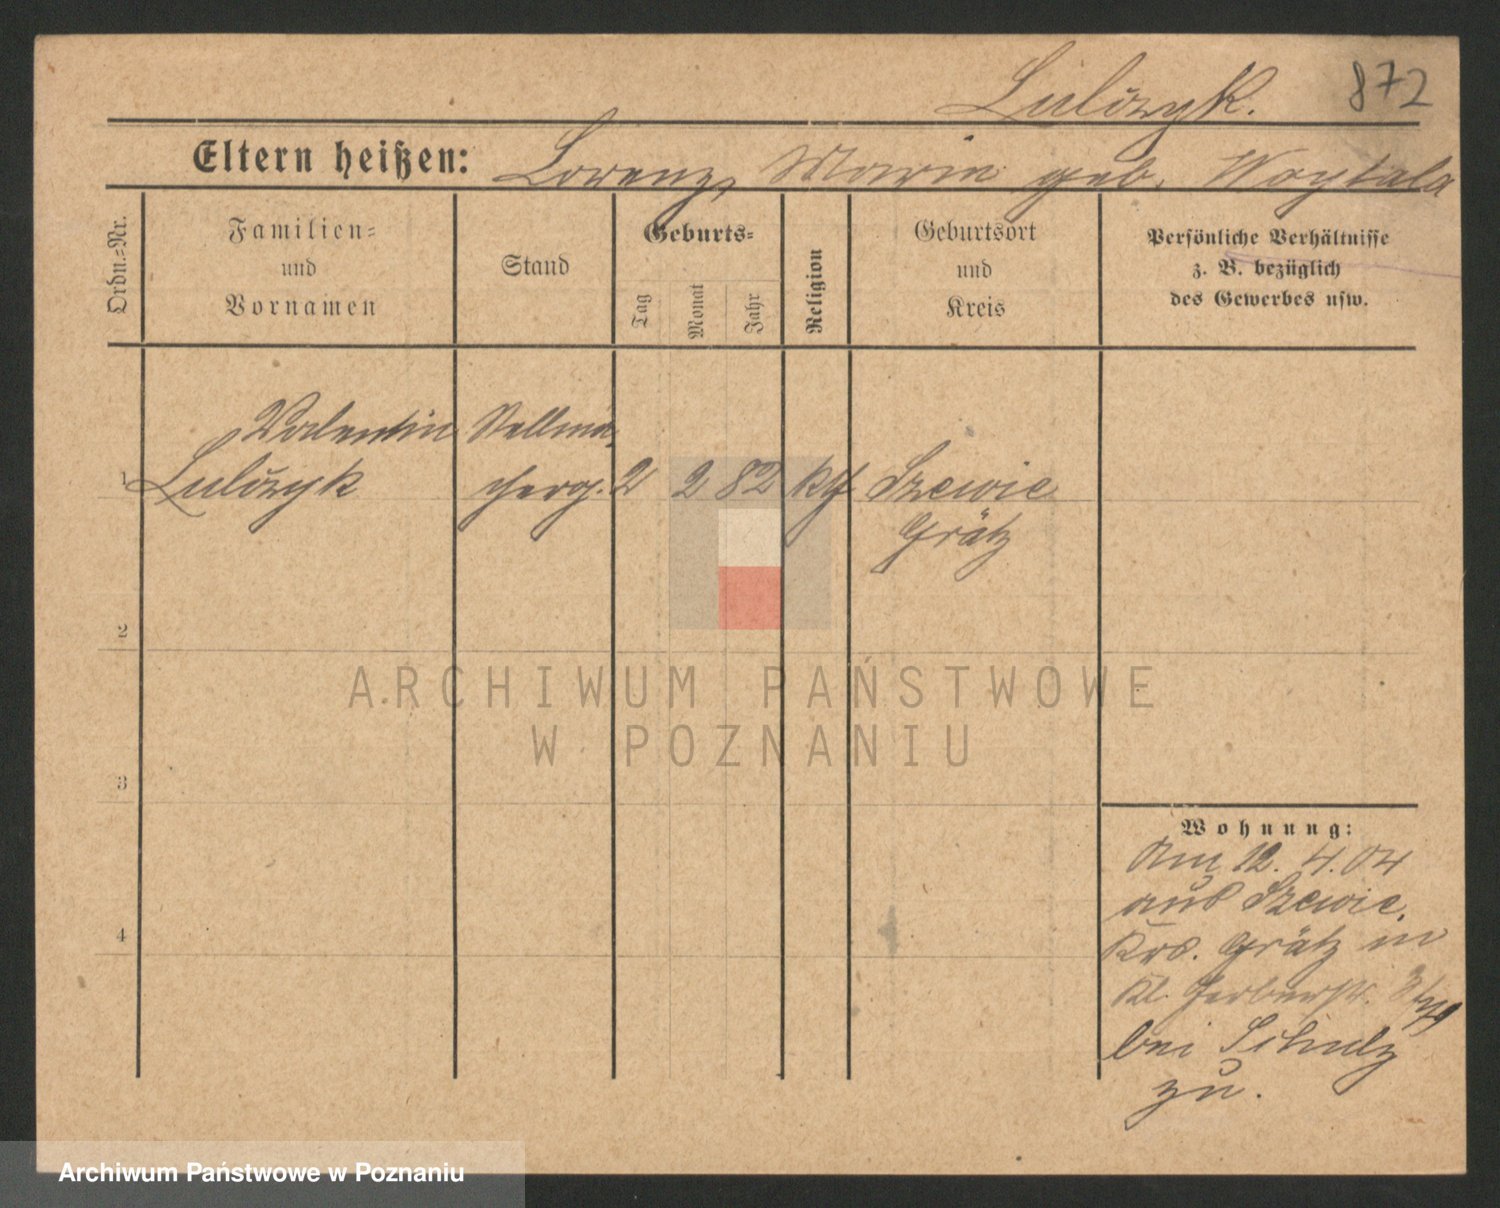 Lulczyk. 872
Eltern heißen: Lorenz, Marie geb. Woytala
Ordn.-Nr.
Familien-
und
Vornamen
Stand
Geburts-
Tag
Monat
Jahr
Religion
Geburtsort
und
Kreis
Persönliche Verhältnisse
z. B. bezüglich
des Gewerbes usw.
Valentin Stellma
1 Lulczyk cherg. 2 2 82 kth Szewie
Grätz
2
3
4
Wohnung:
Am 12. 4. 04
aus Szewie,
Krs. Grätz in
Kl. Gerberstr.
bei Schulz
zu.
ARCHIWUM PAŃSTWOWE
W POZNANIU
Archiwum Państwowe w Poznaniu